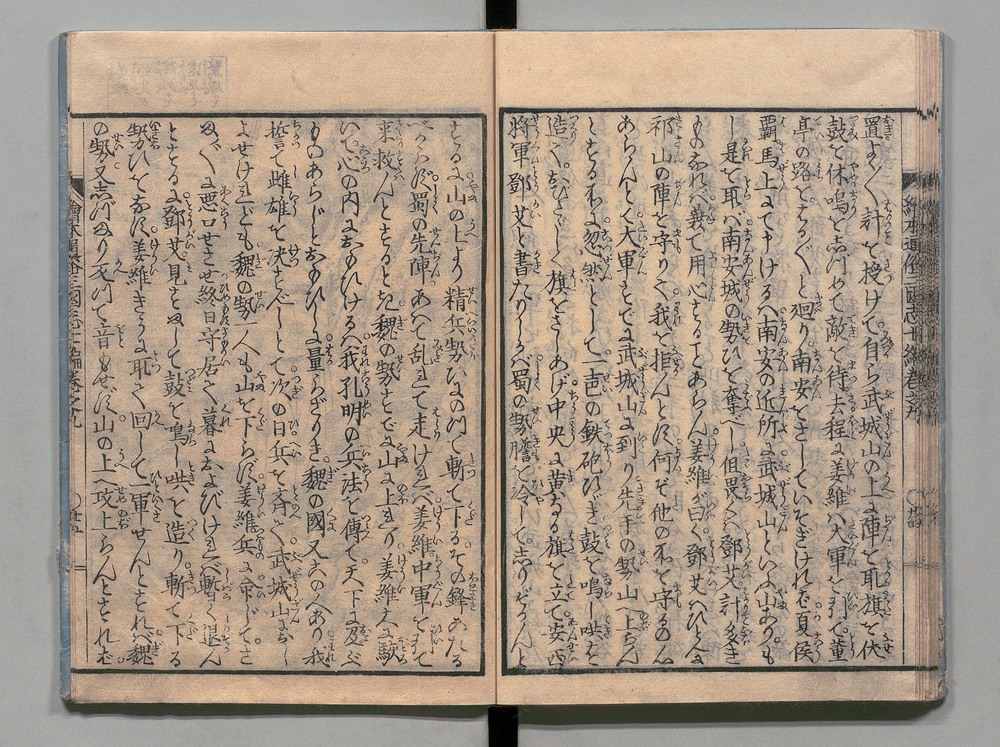 置よく〳〵計を授けて自ら武城山の上に陣を取旗を伏
鼓を休鳴を志づめて敵を待去程に姜維ハ大軍を引て董
亭の路をはる〴〵と廻り南安をさしていそぎけれバ夏侯
覇馬上にて申けるハ南安の近所に武城山といふ山あり
し是を取バ南安城の勢ひを奪べし但畏くハ鄧艾計多き
ものなれバ兼て用心する事あらん姜維が曰く鄧艾ハひとへに
祁山の陣を守りて我を拒んとす何ぞ他の所を守るの心
あらんとて大軍すでに武城山に到り先手の勢山へ上らん
とする所に忽然として一声の鉄砲ひゞき鼓を鳴し吶を
造てひとしく旗をさしあげ中央に黄なる旗を立て安西
将軍鄧艾と書たりしかバ蜀の勢膽を冷して志りぞかんと
とるに山の上より精兵勢ひなのめて斬て下るその鋒あたる
べからず蜀の先陣あへて乱れて走けれバ姜維中軍をすゝめて
来救んとするとき魏の勢すでに山に上れり姜維大に駭
いて心の内におもひけるハ我孔明の兵法を傳て天下に及ぶ
ものあらじとおもひしに量らざりき魏の國又この人あり我
誓て雌雄を決すべしとて次の日兵を斉て武城山におし
よせけれども魏の勢一人も山を下らず姜維兵に命じてさ
ま〴〵に悪口せさせ終日守居て暮におよびけれバ暫く退ん
とするに鄧艾見すまして鼓を鳴し吶を造り斬て下る
勢ひをなす姜維きうに取て回して一軍せんとすれバ魏
の勢又志づまり久って音もせず山の上へ攻上らんとすれども
繪本通俗三國志七編巻之九
廿四
繪本通俗三國志七編巻之九
廿五